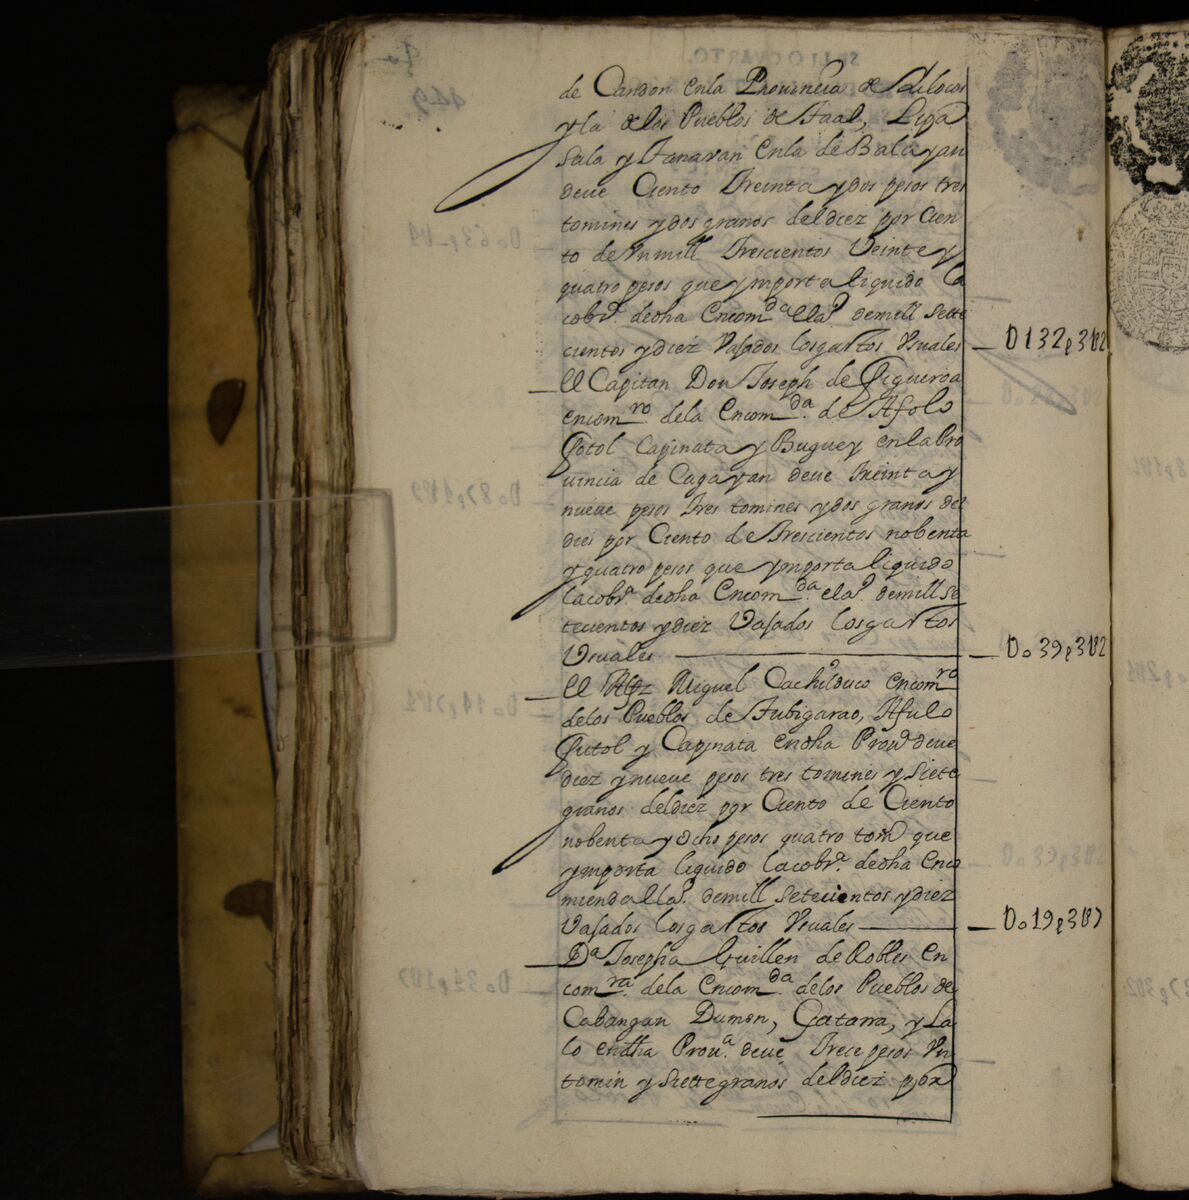 de Candon enla Prouincia de Ailocos
y la delos Pueblos de Taal, Lipa
Sala y Tanavan enla de Balayan
deue Ciento Treinta y dos pesos tres
tomines y dos granos del diez por Cien
to de Vn mill Trescientos Veinte y
quatro pesos que ymporta liquido la
cobr.ª dedha Encom.da ella.º demill Sette
cientos y diez Vajados los gastos Vsuales — D132p3t2
El Capitan Don Joseph de Figueroa
encom.ro dela Encom.da de Afolo
Fotol Capinata y Buguey en la Pro
uincia de Cagayan deue Treinta y
nueue pesos tres tomines y dos granos del
dies por Ciento de Trescientos nobenta
y quatro pesos que ymporta liquido
la cobr.ª dedha Encom.da ela.º demill se
tecientos y diez Vajados los gastos
Vsuales — Do39p3t2
El Alfz Miguel Cachilduco encom.ro
delos Pueblos de Tubigarao, Afulo
Futol y Capinata en dha Prou.ª deue
diez y nueue pesos tres tomines y siete
granos del diez por Ciento de Ciento
nobenta y ocho pesos quatro tom.s que
ymporta liquido la cobr.ª dedha Enco
mienda ella.º demill Setecientos y diez
Vajados los gastos Vsuales — Do19p3t7
D.ª Josepha Guillen de Robles en
com.ra dela Encom.da delos Pueblos de
Cabangan Dumon, Gatarra, y La
lo en dha Prou.ª deue Trece pesos Vn
tomin y siette granos del diez por